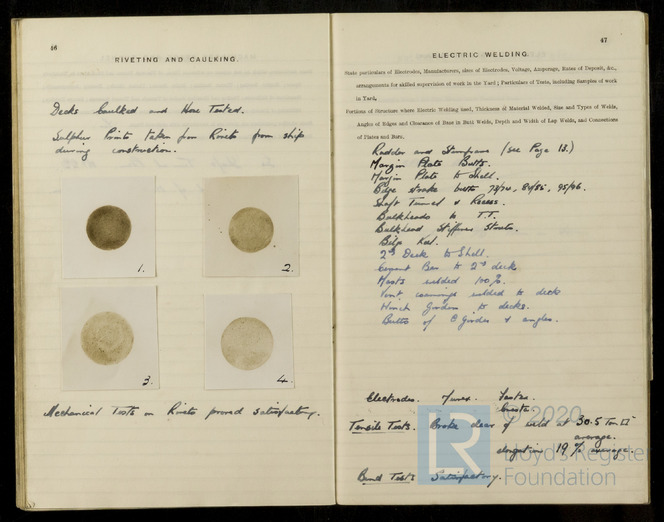 46
RIVETING AND CAULKING.
Decks Caulked and Hose Tested.
Sulphur Prints taken from Rivets from ship
during construction.
1.
2.
3.
4.
Mechanical Tests on Rivets proved satisfactory.
47
ELECTRIC WELDING.
State particulars of Electrodes, Manufacturers, sizes of Electrodes, Voltage, Amperage, Rates of Deposit, &c.,
arrangements for skilled supervision of work in the Yard; Particulars of Tests, including Samples of work
in Yard,
Portions of Structure where Electric Welding used, Thickness of Material Welded, Size and Types of Welds,
Angles of Edges and Clearance of Bars in Butt Welds, Depth and Width of Lap Welds, and Connections
of Plates and Bars.
Rudder and Sternframe (see Page 13.)
Margin Plate Butts.
Margin Plate to Shell.
Edge strake butts 73/74, 84/85, 95/96.
Shaft Tunnel & Recess.
Bulkheads to T.T.
Bulkhead Stiffener
Bilge Keel.
2nd Deck to Shell.
Cement Bar to 2nd deck
Masts welded 100%.
Vent coamings welded to deck
Winch Girders to decks.
Butts of Girders & angles.
Electrodes. Murex. Fastex.
Tensile Tests. Broke clear of weld at 30.5 Ton □"
average.
elongation 19% average.
Bend Tests Satisfactory.
LR
© 2020
Lloyd's Register
Foundation